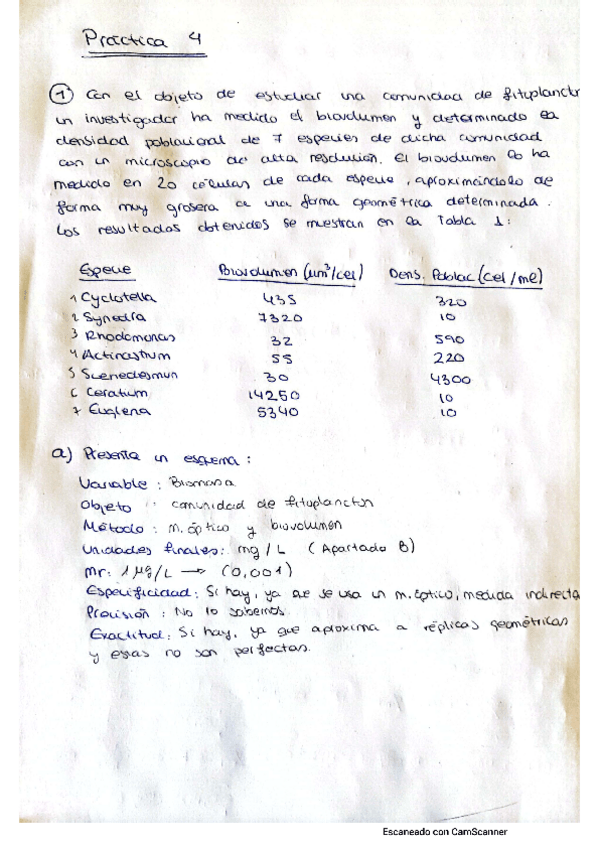 Práctica 4
① Con el objeto de estudiar una comunidad de fitoplanctn
un investigador ha medido el biovolumen y determinado la
densidad poblacional de 7 especies de dicha comunidad
con un microscopio de alta resolución. El biovolumen lo ha
medido en 20 células de cada especie, aproximándolo de
forma muy grosera a una forma geométrica determinada.
Los resultados obtenidos se muestran en la Tabla 1:
Especie Biovolumen (µm³/cel) Dens. Poblac (cel/ml)
1 Cyclotella 435 320
2 Synedra 7320 10
3 Rhodomonas 32 590
4 Actinastrum 55 220
5 Scenedesmun 30 4300
6 Ceratium 14250 10
7 Euglena 5340 10
a) Presenta un esquema:
Variable: Biomasa
Objeto: comunidad de fitoplancton
Método: m. óptico y biovolumen
Unidades finales: mg/L (Apartado B)
mr: 1 µg/L → (0,001)
Especificidad: Si hay, ya que se usa un m. óptico, medida indirecta
Precisión: No lo sabemos.
Exactitud: Si hay, ya que aproxima a réplicas geométricas
y esas no son perfectas.
Escaneado con CamScanner